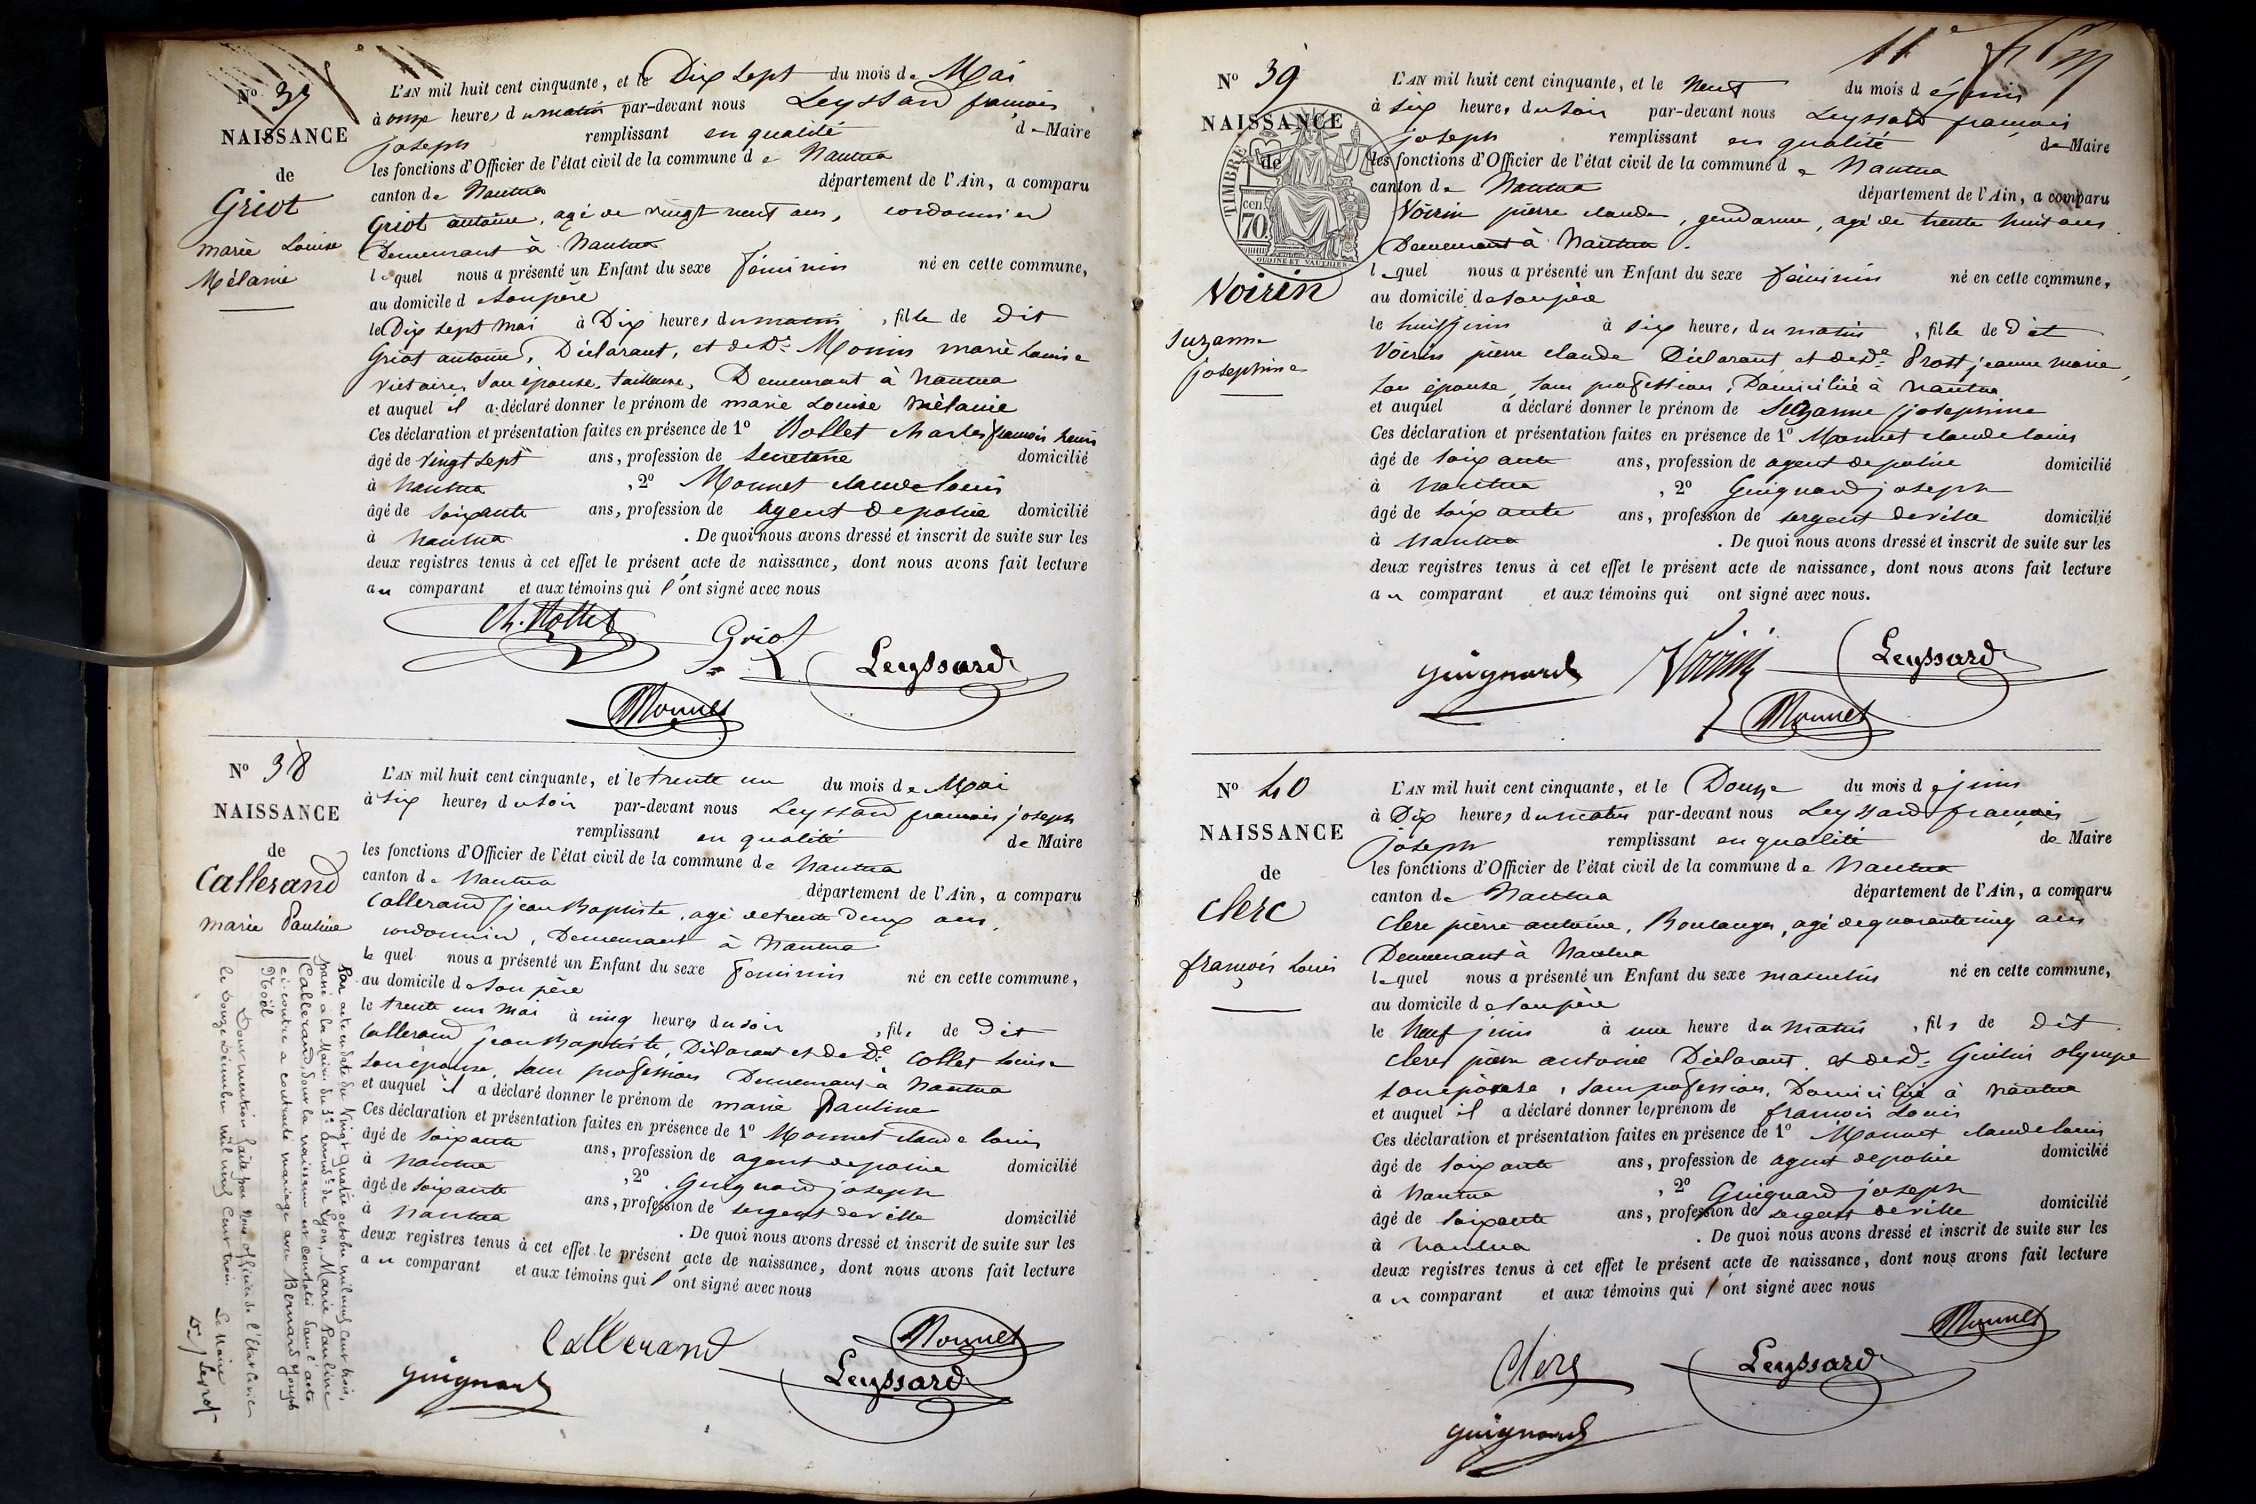 N° 37
NAISSANCE
de
Griot
marie Louise
Mélanie
L'AN mil huit cent cinquante, et le Dix sept du mois de Mai
à onze heures du matin par-devant nous Leyssard françois
joseph remplissant en qualité de Maire
les fonctions d'Officier de l'état civil de la commune de Nantua
canton de Nantua département de l'Ain, a comparu
Griot antoine, agé de vingt neuf ans, cordonnier
Demeurant à Nantua
lequel nous a présenté un Enfant du sexe féminin né en cette commune,
au domicile de son père
le Dix sept mai à Dix heures du matin, fille de dit
Griot antoine, Déclarant, et de De Monin marie Louise
victoire, son épouse, tailleuse, Demeurant à Nantua
et auquel il a déclaré donner le prénom de marie Louise Mélanie
Ces déclaration et présentation faites en présence de 1° Nollet charles françois henri
âgé de vingt sept ans, profession de secretaire domicilié
à Nantua, 2° Monnet claude louis
âgé de soixante ans, profession de agent de police domicilié
à Nantua. De quoi nous avons dressé et inscrit de suite sur les
deux registres tenus à cet effet le présent acte de naissance, dont nous avons fait lecture
au comparant et aux témoins qui l'ont signé avec nous
Ch. Nollet
Griot
Leyssard
Monnet
N° 38
NAISSANCE
de
Callerand
marie Pauline
L'AN mil huit cent cinquante, et le trente un du mois de Mai
à six heures du soir par-devant nous Leyssard françois joseph
remplissant en qualité de Maire
les fonctions d'Officier de l'état civil de la commune de Nantua
canton de Nantua département de l'Ain, a comparu
Callerand jean Baptiste, agé de trente Deux ans,
cordonnier, Demeurant à Nantua
lequel nous a présenté un Enfant du sexe féminin né en cette commune,
au domicile de son père
le trente un mai à cinq heures du soir, fils de dit
Callerand jean Baptiste, Déclarant et de De Collet Louise
son épouse, sans profession Demeurant à Nantua
et auquel il a déclaré donner le prénom de marie Pauline
Ces déclaration et présentation faites en présence de 1° Monnet claude louis
âgé de soixante ans, profession de agent de police domicilié
à Nantua, 2° Guignard joseph
âgé de soixante ans, profession de sergent de ville domicilié
à Nantua. De quoi nous avons dressé et inscrit de suite sur les
deux registres tenus à cet effet le présent acte de naissance, dont nous avons fait lecture
au comparant et aux témoins qui l'ont signé avec nous
Callerand
Monnet
guignard
Leyssard
Par acte en date du Vingt quatre octobre mil neuf cent trois,
passé à la Mairie du 3e arrond.t de Lyon, Marie Pauline
Callerand, dont la naissance est constatée dans l'acte
ci-contre a contracté mariage avec Bernard Joseph
Noël
Dont mention faite par Nous officier de l'Etat Civil
le Douze Décembre mil neuf cent trois. Le Maire
N° 39
NAISSANCE
de
TIMBRE
cen
70
OUDINE ET VAUTHIER
Voirin
suzanne
josephine
11e
L'AN mil huit cent cinquante, et le neuf du mois de juin
à six heures du soir par-devant nous Leyssard françois
joseph remplissant en qualité de Maire
les fonctions d'Officier de l'état civil de la commune de Nantua
canton de Nantua département de l'Ain, a comparu
Voirin pierre claude, gendarme, agé de trente huit ans
Demeurant à Nantua.
lequel nous a présenté un Enfant du sexe féminin né en cette commune,
au domicile de son père
le huit juin à six heures du matin, fille de dit
Voirin pierre claude Déclarant et de De Prost jeanne marie,
son épouse, sans profession, Domiciliée à Nantua
et auquel a déclaré donner le prénom de Suzanne josephine
Ces déclaration et présentation faites en présence de 1° Monnet claude louis
âgé de soixante ans, profession de agent de police domicilié
à Nantua, 2° Guignard joseph
âgé de soixante ans, profession de sergent de ville domicilié
à Nantua. De quoi nous avons dressé et inscrit de suite sur les
deux registres tenus à cet effet le présent acte de naissance, dont nous avons fait lecture
au comparant et aux témoins qui ont signé avec nous.
guignard
Voirin
Leyssard
Monnet
N° 40
NAISSANCE
de
Clerc
françois Louis
L'AN mil huit cent cinquante, et le Douze du mois de juin
à Dix heures du matin par-devant nous Leyssard françois
joseph remplissant en qualité de Maire
les fonctions d'Officier de l'état civil de la commune de Nantua
canton de Nantua département de l'Ain, a comparu
Clerc pierre antoine, Boulanger, agé de quarante cinq ans
Demeurant à Nantua
lequel nous a présenté un Enfant du sexe masculin né en cette commune,
au domicile de son père
le Neuf juin à une heure du matin, fils de dit
Clerc pierre antoine Déclarant, et de De Guélin olympe
son épouse, sans profession, Domiciliée à Nantua
et auquel il a déclaré donner le prénom de françois Louis
Ces déclaration et présentation faites en présence de 1° Monnet claude louis
âgé de soixante ans, profession de agent de police domicilié
à Nantua, 2° Guignard joseph
âgé de soixante ans, profession de sergent de ville domicilié
à Nantua. De quoi nous avons dressé et inscrit de suite sur les
deux registres tenus à cet effet le présent acte de naissance, dont nous avons fait lecture
au comparant et aux témoins qui l'ont signé avec nous
Monnet
Clerc
Leyssard
guignard